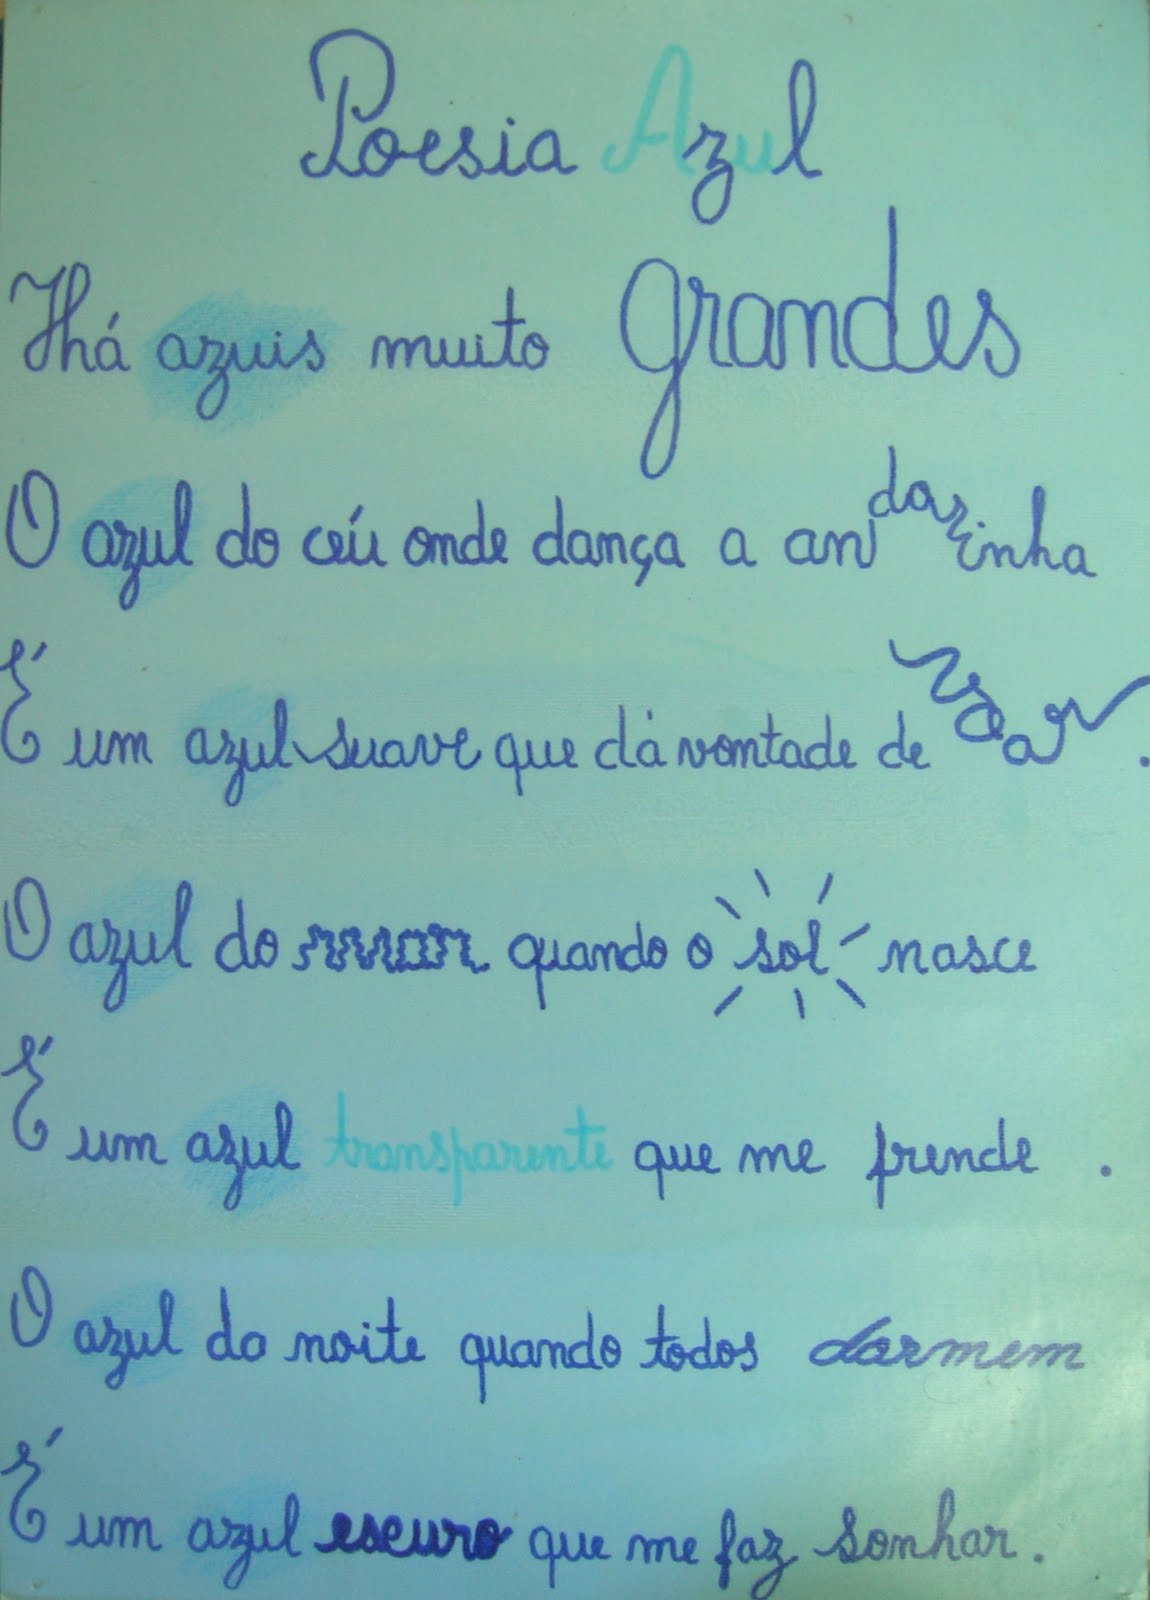 Poesia Azul
Há azuis muito grandes
O azul do céu onde dança a andorinha
É um azul suave que dá vontade de voar.
O azul do mar quando o sol nasce
É um azul transparente que me prende.
O azul da noite quando todos dormem
É um azul escuro que me faz sonhar.